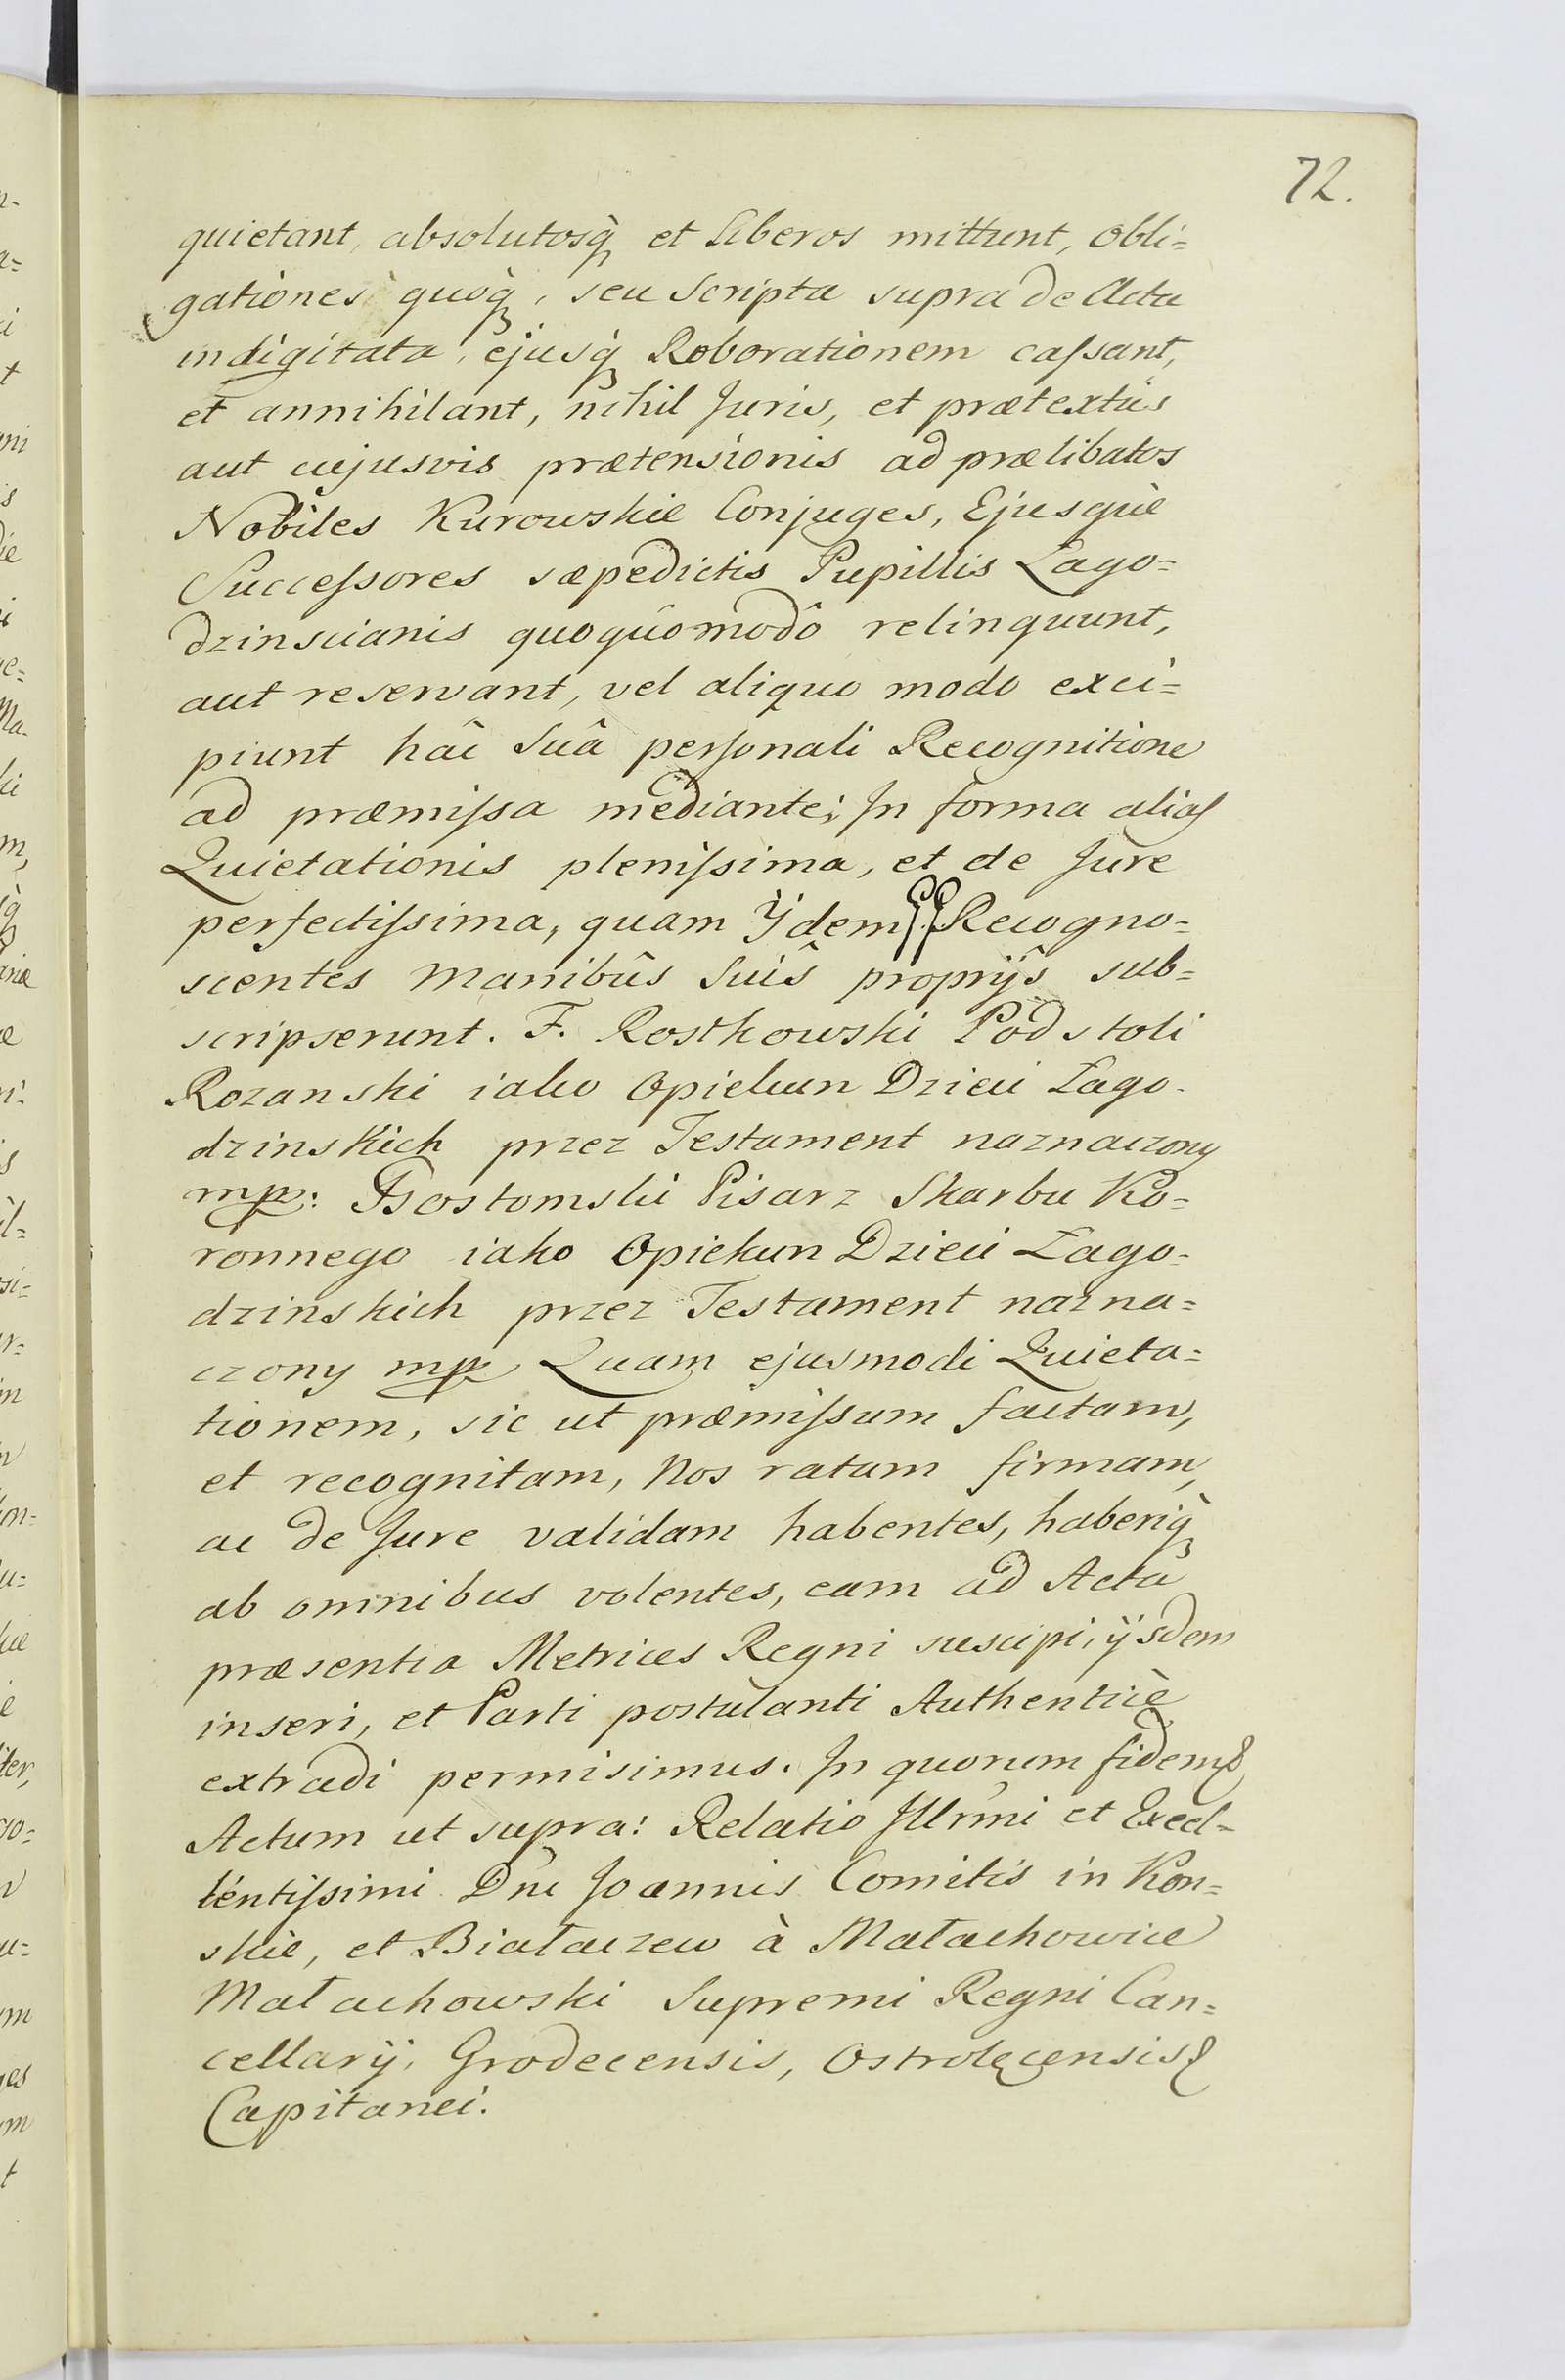 72.
quietant, absolutosq̀ et Liberos mittunt, Obli=
gationes quoq̀, seu Scripta supra de Acta
indigitata, ejusq̀ Roborationem caſsant,
et annihilant, nihil Juris, et prætextûs
aut cujusvis prætensionis ad prælibatos
Nobiles Kurowskie Conjuges, Ejusquè
Succeſsores sæpedictis Pupillis Łago=
dzinscianis quoquômodô relinquunt,
aut reservant, vel aliquo modo exci=
piunt hâc Suâ perſonali Recognitione
ad præmiſsa mediante; In forma aliaſ
Quietationis pleniſsima, et de Jure
perfectiſsima, quam Ÿdem PP. Recogno=
scentes Manibûs Suis proprÿs sub=
scripserunt. F. Rostkowski Podstoli
Rozanski iako Opiekun Dzieci Łago-
dzinskich przez Testament naznaczony
mp: Gostomski Pisarz Skarbu Ko=
ronnego iako Opiekun Dzieci Łago-
dzinskich przez Testament nazna=
czony mp Quam ejusmodi Quieta=
tionem, sic ut præmiſsum factam,
et recognitam, Nos ratam firmam,
ac de Jure validam habentes, haberiq̀
ab omnibus volentes, eam ad Acta
præsentia Metrices Regni suscipi, ÿsdem
inseri, et Parti postulanti Authenticè
extradi permisimus. In quorum fidem
Actum ut supra: Relatio Jllrmi et Excel-
lentiſsimi Dni Joannis Comitis in Kon=
skie, et Białaczew à Małachowice
Małachowski Supremi Regni Can=
cellarÿ, Grodecensis, Ostrołęcensis
Capitanei.